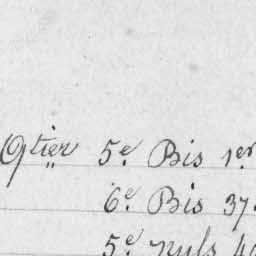 Qtier 5e Bis 1er
6e Bis 37.
5e